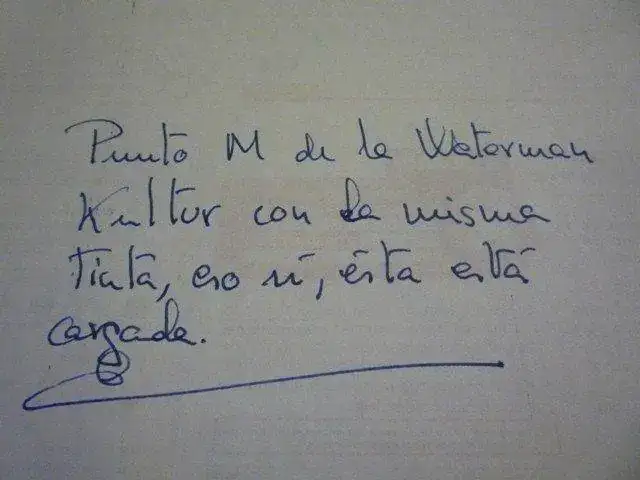 Punto M de la Waterman
Kultur con la misma
tinta, eso sí, ésta está
cargada.